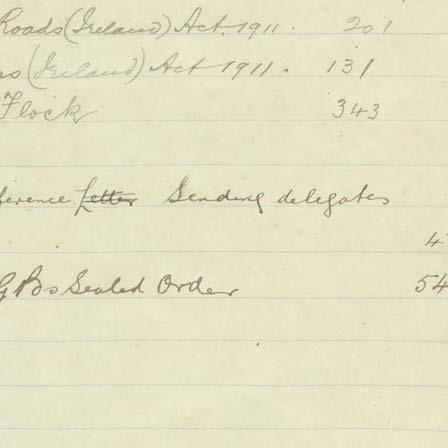 Roads (Ireland) Act. 1911. 201
(Ireland) Act 1911. 131
Flock 343
ference Letter Sending delegates
4
G Bs Sealed Order 54